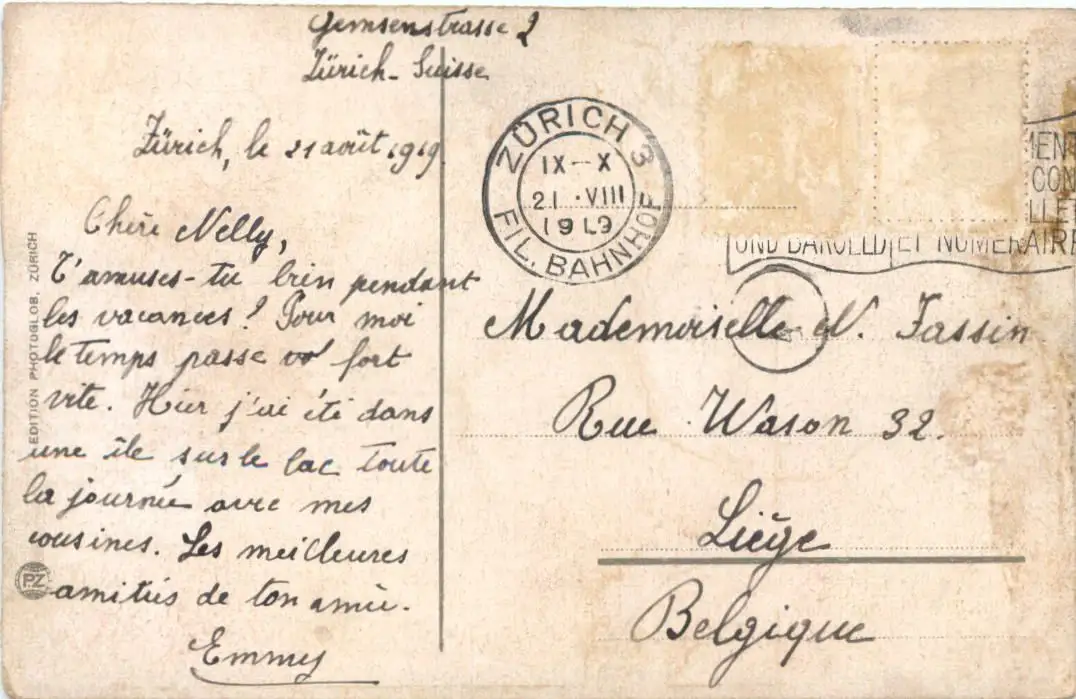 Gemsenstrasse 2
Zürich - Suisse
Zürich, le 21 août 1919
Chère Nelly,
T'amuses-tu bien pendant
les vacances? Pour moi
le temps passe fort
vite. Hier j'ai été dans
une île sur le lac toute
la journée avec mes
cousines. Les meilleures
amitiés de ton amie.
Emmy
EDITION PHOTOGLOB, ZÜRICH
PZ
ZÜRICH 3
IX-X
21.VIII
1919
FIL. BAHNHOF
ET NUMERAIRE
Mademoiselle N. Fassin
Rue Wason 32.
Liège
Belgique